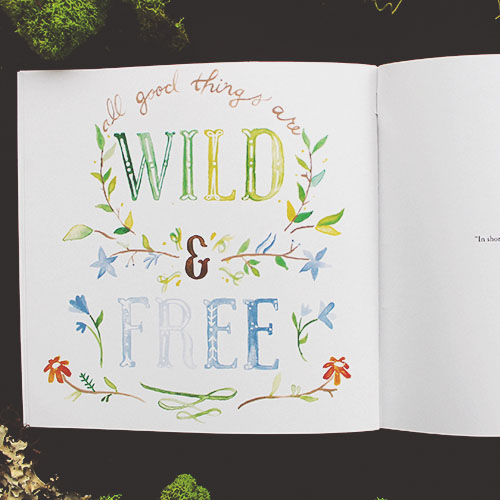 all good things are
WILD
&
FREE
"In shor